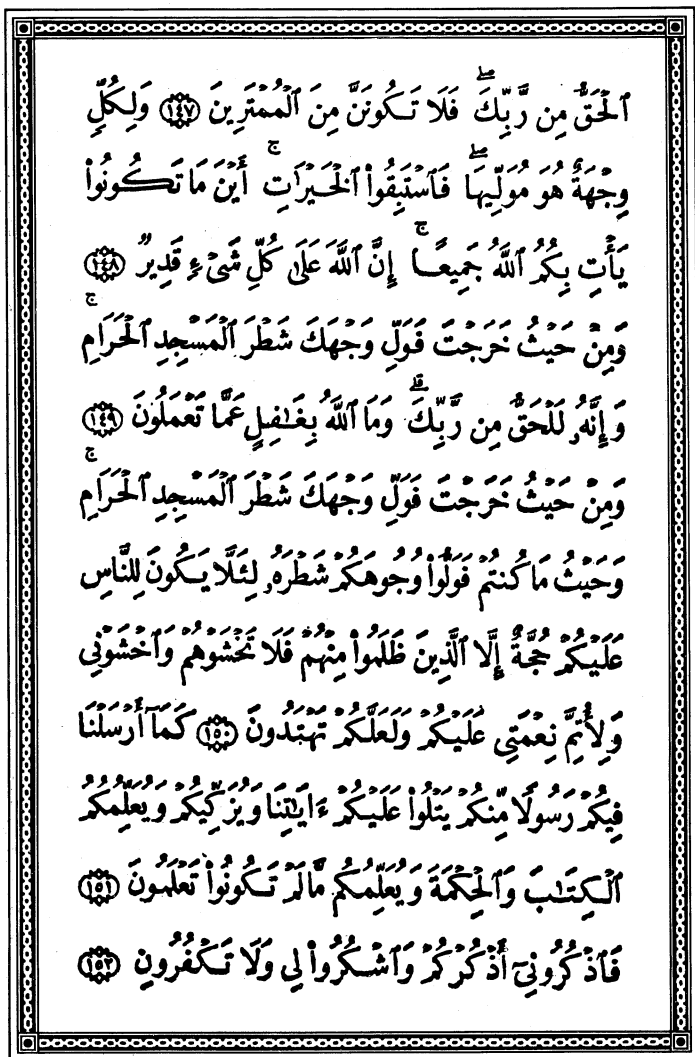 ٱلْحَقُّ مِن رَّبِّكَ ۖ فَلَا تَكُونَنَّ مِنَ ٱلْمُمْتَرِينَ ﴿١٤٧﴾ وَلِكُلٍّ
وِجْهَةٌ هُوَ مُوَلِّيهَا ۖ فَٱسْتَبِقُوا۟ ٱلْخَيْرَٰتِ ۚ أَيْنَ مَا تَكُونُوا۟
يَأْتِ بِكُمُ ٱللَّهُ جَمِيعًا ۚ إِنَّ ٱللَّهَ عَلَىٰ كُلِّ شَىْءٍ قَدِيرٌ ﴿١٤٨﴾
وَمِنْ حَيْثُ خَرَجْتَ فَوَلِّ وَجْهَكَ شَطْرَ ٱلْمَسْجِدِ ٱلْحَرَامِ ۚ
وَإِنَّهُۥ لَلْحَقُّ مِن رَّبِّكَ ۗ وَمَا ٱللَّهُ بِغَٰفِلٍ عَمَّا تَعْمَلُونَ ﴿١٤٩﴾
وَمِنْ حَيْثُ خَرَجْتَ فَوَلِّ وَجْهَكَ شَطْرَ ٱلْمَسْجِدِ ٱلْحَرَامِ ۚ
وَحَيْثُ مَا كُنتُمْ فَوَلُّوا۟ وُجُوهَكُمْ شَطْرَهُۥ لِئَلَّا يَكُونَ لِلنَّاسِ
عَلَيْكُمْ حُجَّةٌ إِلَّا ٱلَّذِينَ ظَلَمُوا۟ مِنْهُمْ فَلَا تَخْشَوْهُمْ وَٱخْشَوْنِى
وَلِأُتِمَّ نِعْمَتِى عَلَيْكُمْ وَلَعَلَّكُمْ تَهْتَدُونَ ﴿١٥٠﴾ كَمَآ أَرْسَلْنَا
فِيكُمْ رَسُولًا مِّنكُمْ يَتْلُوا۟ عَلَيْكُمْ ءَايَٰتِنَا وَيُزَكِّيكُمْ وَيُعَلِّمُكُمُ
ٱلْكِتَٰبَ وَٱلْحِكْمَةَ وَيُعَلِّمُكُم مَّا لَمْ تَكُونُوا۟ تَعْلَمُونَ ﴿١٥١﴾
فَٱذْكُرُونِىٓ أَذْكُرْكُمْ وَٱشْكُرُوا۟ لِى وَلَا تَكْفُرُونِ ﴿١٥٢﴾